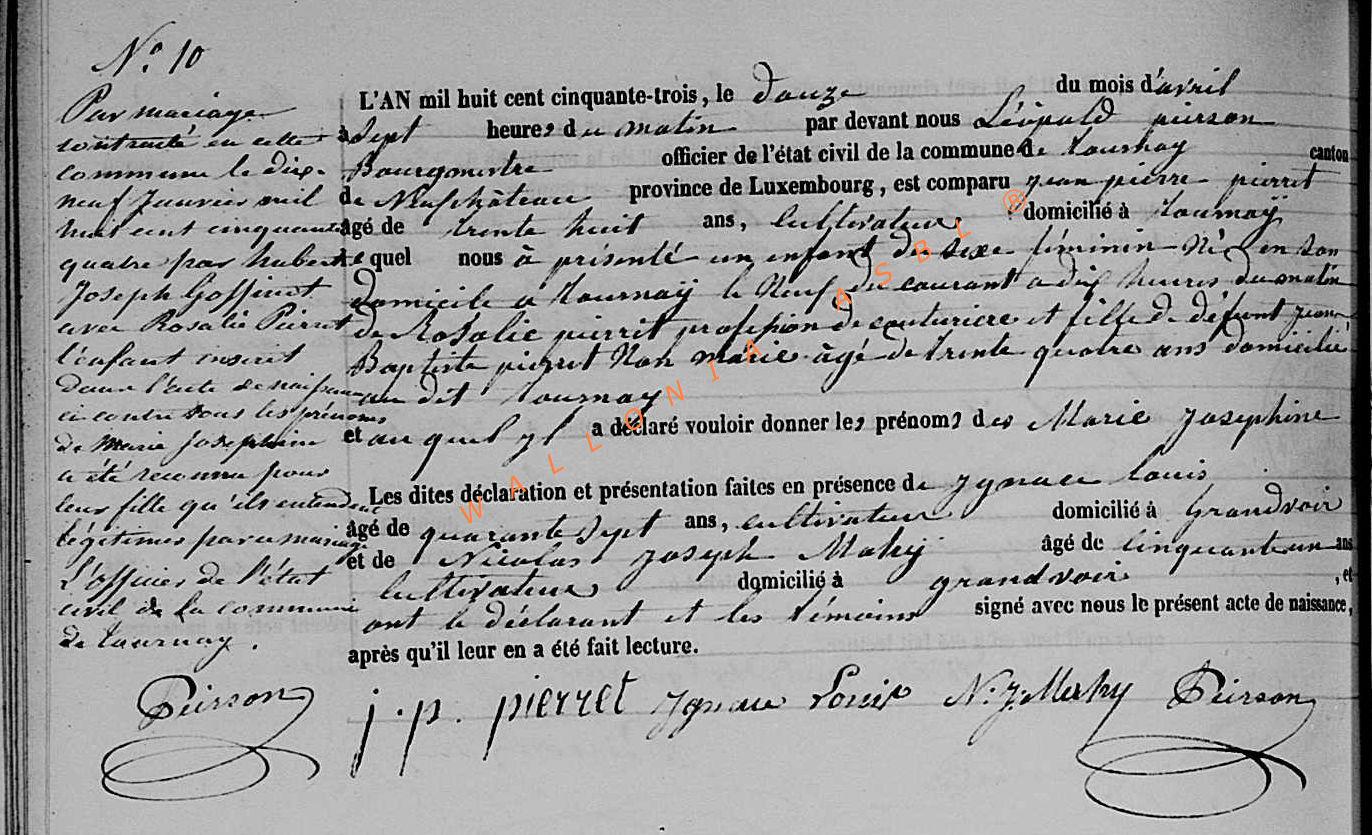 N.o 10
Par mariage
contracté en cette
commune le dix-
neuf Janvier mil
huit cent cinquante
quatre par hubert
Joseph Goffinet
avec Rosalie Pierret
l'enfant inscrit
dans l'acte de naissance
ci contre sous les prénoms
de Marie Josephine
a été reconnu pour
leur fille qu'ils entendent
légitimer par ce mariage
L'officier de l'état
civil de la commune
de tournay.
Peirson
L'AN mil huit cent cinquante-trois, le douze du mois d'avril
à Sept heures du matin par devant nous Léopold pierson
Bourgmestre officier de l'état civil de la commune de tournay canton
de Neufchâteau province de Luxembourg, est comparu jean pierre pierret
âgé de trente huit ans, cultivateur domicilié à tournaÿ
le quel nous à présenté un enfant du sexe féminin Né en son
domicile a tournaÿ le Neuf du courant a dix heures du matin
de Rosalie pierret profession de couturiere et fille de défunt jean
Baptiste pierret Non mariée âgé de trente quatre ans domicilié
au dit tournay
et au quel yl a déclaré vouloir donner les prénoms des Marie Josephine
Les dites déclaration et présentation faites en présence de Jgnace Louis
âgé de quarante sept ans, cultivateur domicilié à Grandvoir
et de Nicolas Joseph Mahy âgé de Cinquante un ans
cultivateur domicilié à grandvoir, et
ont le déclarant et les témoins signé avec nous le présent acte de naissance,
après qu'il leur en a été fait lecture.
j. p. pierret Jgnace Louis N. J. Mahy Peirson
WALLONIA ASBL ®